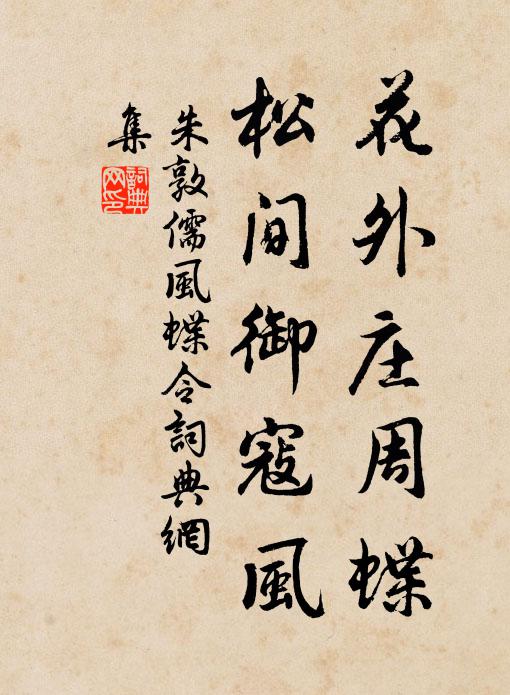 花外庄周蝶
松间御寇風
朱敦儒風蝶令詞典網
集
詞典
网印